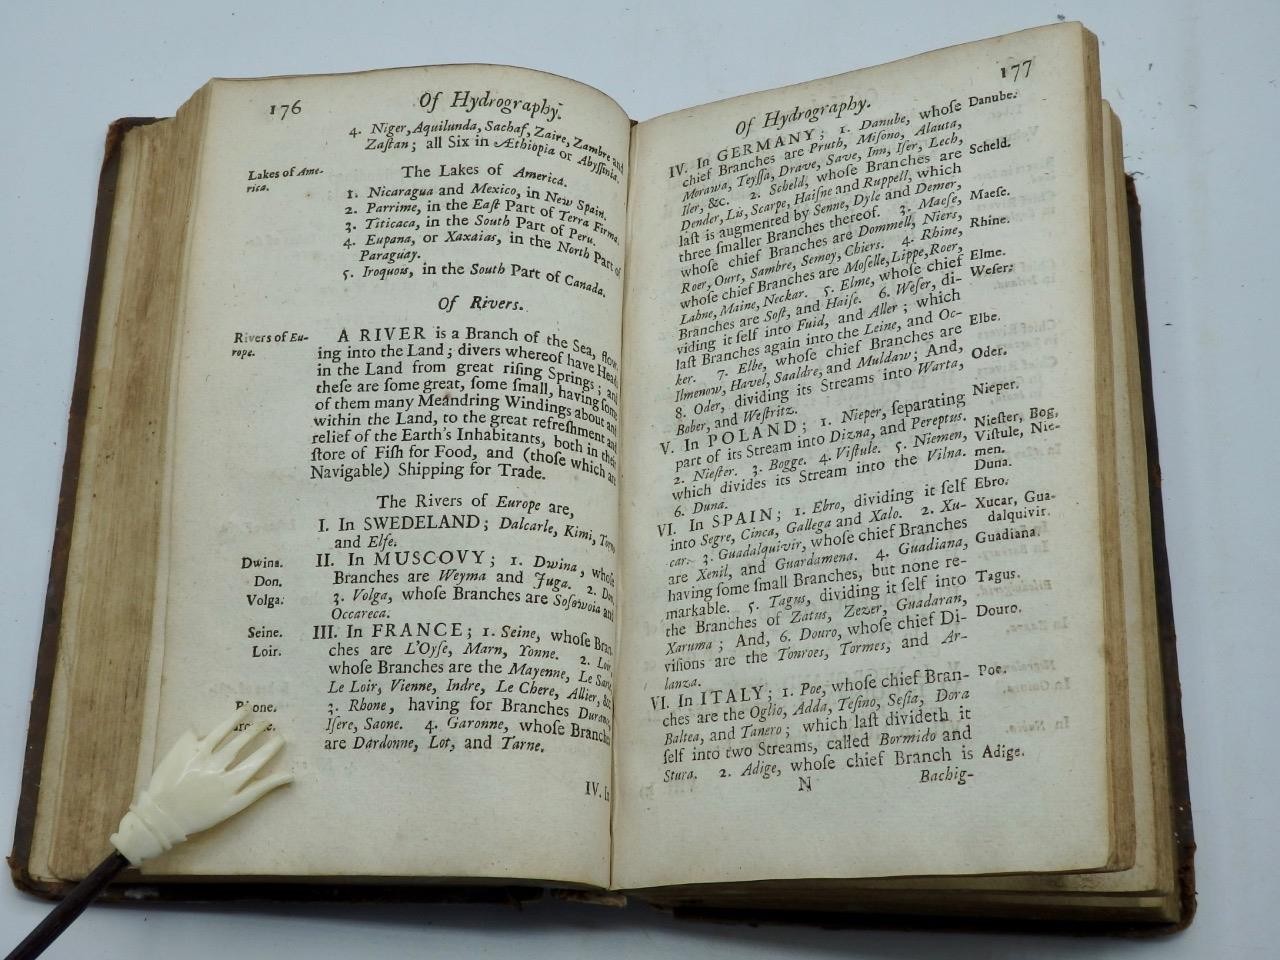 176
Of Hydrography.
4. Niger, Aquilunda, Sachaf, Zaire, Zambre and
Zaſtan; all Six in Æthiopia or Abyſſinia.
Lakes of Ame-
rica.
The Lakes of America.
1. Nicaragua and Mexico, in New Spain.
2. Parrime, in the Eaſt Part of Terra Firma.
3. Titicaca, in the South Part of Peru.
4. Eupana, or Xaxaias, in the North Part of
Paraguay.
5. Iroquois, in the South Part of Canada.
Of Rivers.
Rivers of Eu-
rope.
A RIVER is a Branch of the Sea, flow-
ing into the Land; divers whereof have Heads
in the Land from great riſing Springs; and
theſe are ſome great, ſome ſmall, having ſome
of them many Meandring Windings about and
within the Land, to the great refreſhment and
relief of the Earth's Inhabitants, both in their
ſtore of Fiſh for Food, and (thoſe which are
Navigable) Shipping for Trade.
The Rivers of Europe are,
I. In SWEDELAND; Dalcarle, Kimi, Torno
and Elfe.
Dwina.
Don.
Volga.
II. In MUSCOVY; 1. Dwina, whoſe
Branches are Weyma and Juga. 2. Don,
3. Volga, whoſe Branches are Soſowoia and
Occareca.
Seine.
Loir.
III. In FRANCE; 1. Seine, whoſe Bran-
ches are L'Oyſe, Marn, Yonne. 2. Loir,
whoſe Branches are the Mayenne, Le Sarte,
Le Loir, Vienne, Indre, Le Chere, Allier, &c.
Rhone.
3. Rhone, having for Branches Durance,
Iſere, Saone. 4. Garonne, whoſe Branches
are Dardonne, Lot, and Tarne.
IV. In
177
Of Hydrography.
IV. In GERMANY; 1. Danube, whoſe Danube.
chief Branches are Pruth, Miſono, Alauta,
Morawa, Teyſſa, Drave, Save, Inn, Iſer, Lech,
Iler, &c. 2. Scheld, whoſe Branches are Scheld.
Dender, Lis, Scarpe, Haiſne and Ruppell, which
laſt is augmented by Senne, Dyle and Demer,
three ſmaller Branches thereof. 3. Maeſe, Maeſe.
whoſe chief Branches are Dommell, Niers,
Roer, Ourt, Sambre, Semoy, Chiers. 4. Rhine, Rhine.
whoſe chief Branches are Moſelle, Lippe, Roer,
Lahne, Maine, Neckar. 5. Elme, whoſe chief Elme.
Branches are Soſt, and Haiſe. 6. Weſer, di- Weſer.
viding it ſelf into Fuid, and Aller; which
laſt Branches again into the Leine, and Oc-
ker. 7. Elbe, whoſe chief Branches are Elbe.
Ilmenow, Havel, Saaldre, and Muldaw; And,
8. Oder, dividing its Streams into Warta, Oder.
Bober, and Weſtritz.
V. In POLAND; 1. Nieper, ſeparating Nieper.
part of its Stream into Dizna, and Pereptus.
2. Nieſter. 3. Bogge. 4. Viſtule. 5. Niemen, Nieſter, Bog,
which divides its Stream into the Vilna. Viſtule, Nie-
men.
6. Duna. Duna.
VI. In SPAIN; 1. Ebro, dividing it ſelf Ebro.
into Segre, Cinca, Gallega and Xalo. 2. Xu- Xucar, Gua-
car. 3. Guadalquivir, whoſe chief Branches dalquivir.
are Xenil, and Guardamena. 4. Guadiana, Guadiana.
having ſome ſmall Branches, but none re-
markable. 5. Tagus, dividing it ſelf into Tagus.
the Branches of Zatus, Zezer, Guadaran,
Xaruma; And, 6. Douro, whoſe chief Di- Douro.
viſions are the Tonroes, Tormes, and Ar-
lanza.
VI. In ITALY; 1. Poe, whoſe chief Bran- Poe.
ches are the Oglio, Adda, Teſino, Seſia, Dora
Baltea, and Tanero; which laſt divideth it
ſelf into two Streams, called Bormido and
Stura. 2. Adige, whoſe chief Branch is Adige.
N
Bachig-